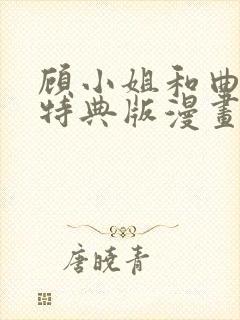 顾小姐和曲
特典版漫畫
唐曉青